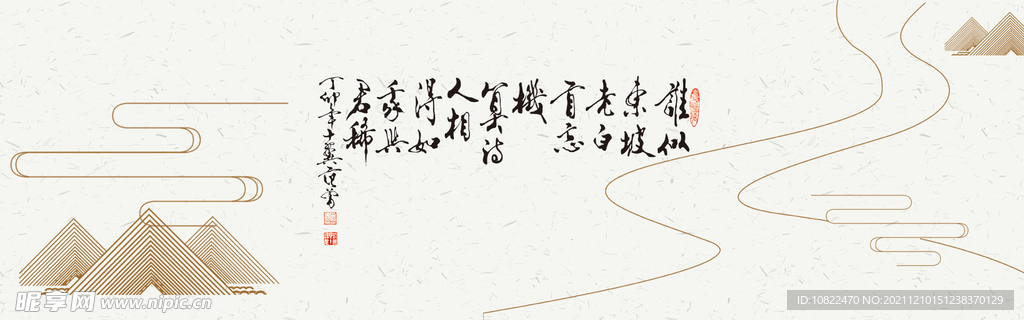 誰似
東坡
老白
首忘
機
算詩
人相
得如
我與
君稀
丁卯年十翼范曾
昵享网 www.nipic.cn
ID:10822470 NO:20211210151238370129